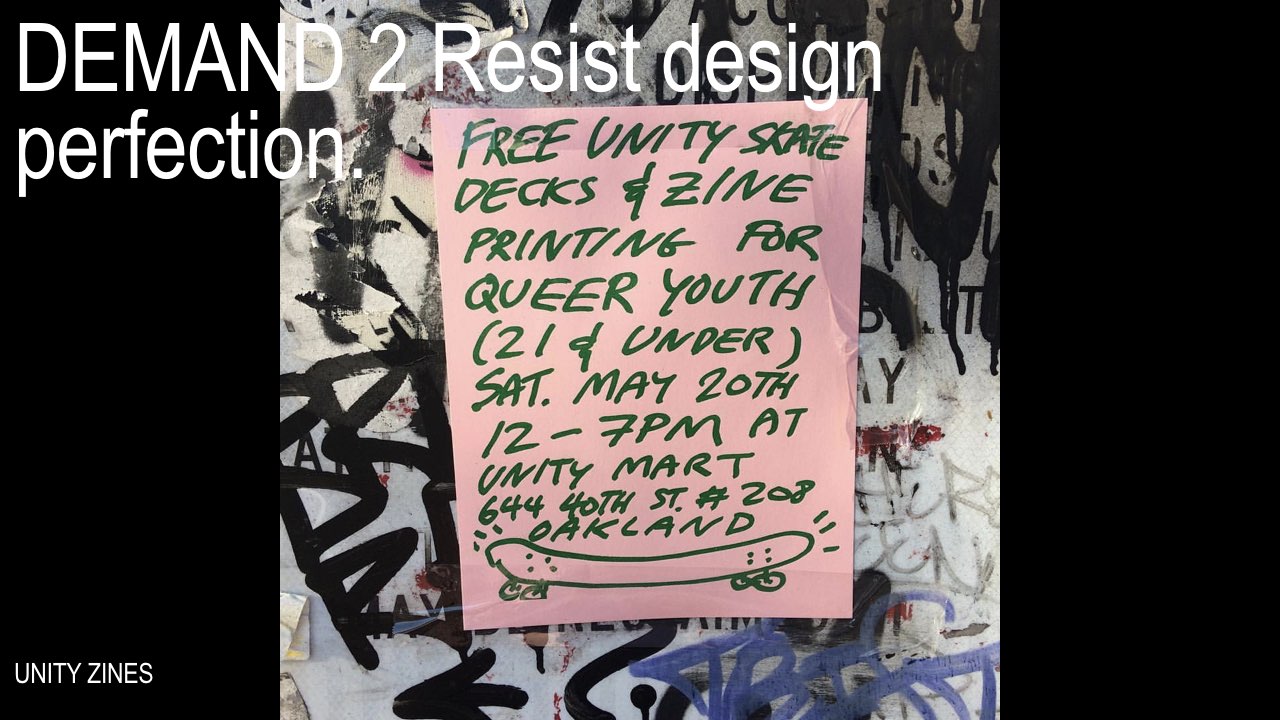 DEMAND 2 Resist design
perfection.
FREE UNITY SKATE
DECKS & ZINE
PRINTING FOR
QUEER YOUTH
(21 & UNDER)
SAT. MAY 20TH
12 - 7PM AT
UNITY MART
644 40TH ST. # 208
OAKLAND
UNITY ZINES